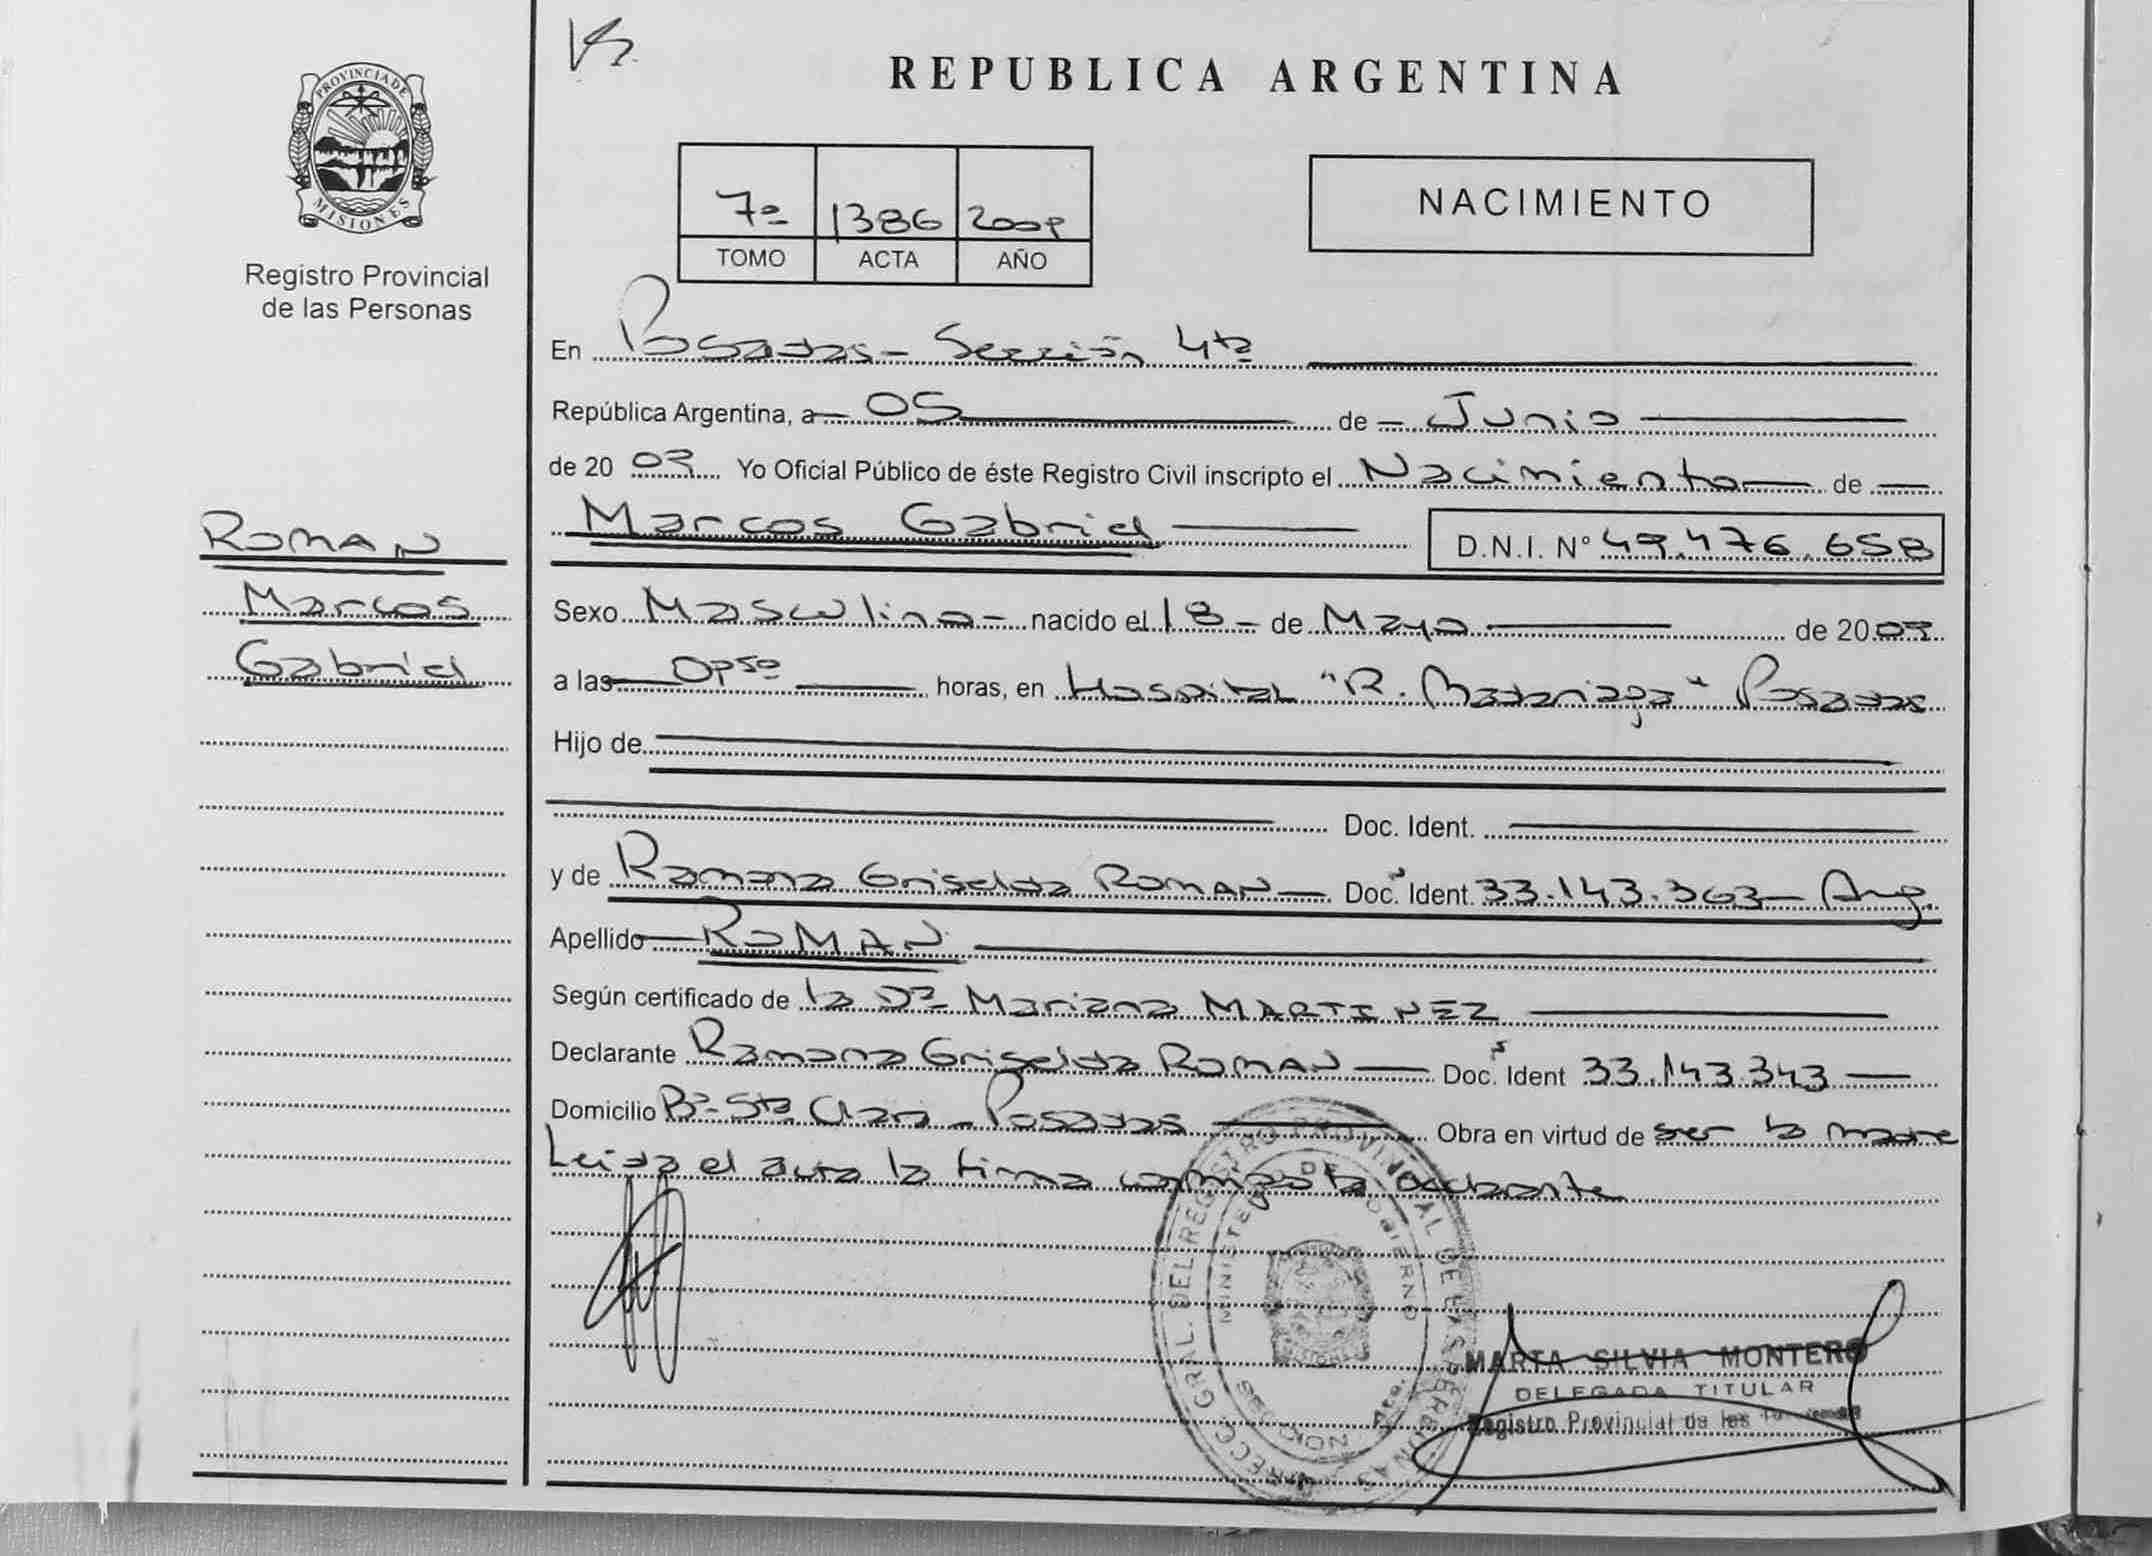 PROVINCIA DE
MISIONES
Registro Provincial
de las Personas
ROMAN
Marcos
Gabriel
REPUBLICA ARGENTINA
7º 1386 2009
TOMO ACTA AÑO
NACIMIENTO
En Posadas - Sección 4ta
República Argentina, a 05 de Junio
de 20 09 Yo Oficial Público de éste Registro Civil inscripto el Nacimiento de
Marcos Gabriel D.N.I. Nº 49.476.658
Sexo Masculino - nacido el 18 - de Mayo de 20 09
a las 0950 horas, en Hospital "R. Madariaga" Posadas
Hijo de
Doc. Ident.
y de Ramona Griselda ROMAN Doc. Ident. 33.143.363 - Arg.
Apellido ROMAN
Según certificado de la Dra Mariana MARTINEZ
Declarante Ramona Griselda ROMAN Doc. Ident 33.143.343
Domicilio Bº Sta Clara - Posadas Obra en virtud de ser la madre
Leida el acta la firma conmigo la declarante
DIRECC. GRAL. DEL REGISTRO PROVINCIAL DE LAS PERSONAS
MINISTERIO DE GOBIERNO
MISIONES
MARTA SILVIA MONTERO
DELEGADA TITULAR
Registro Provincial de las Personas